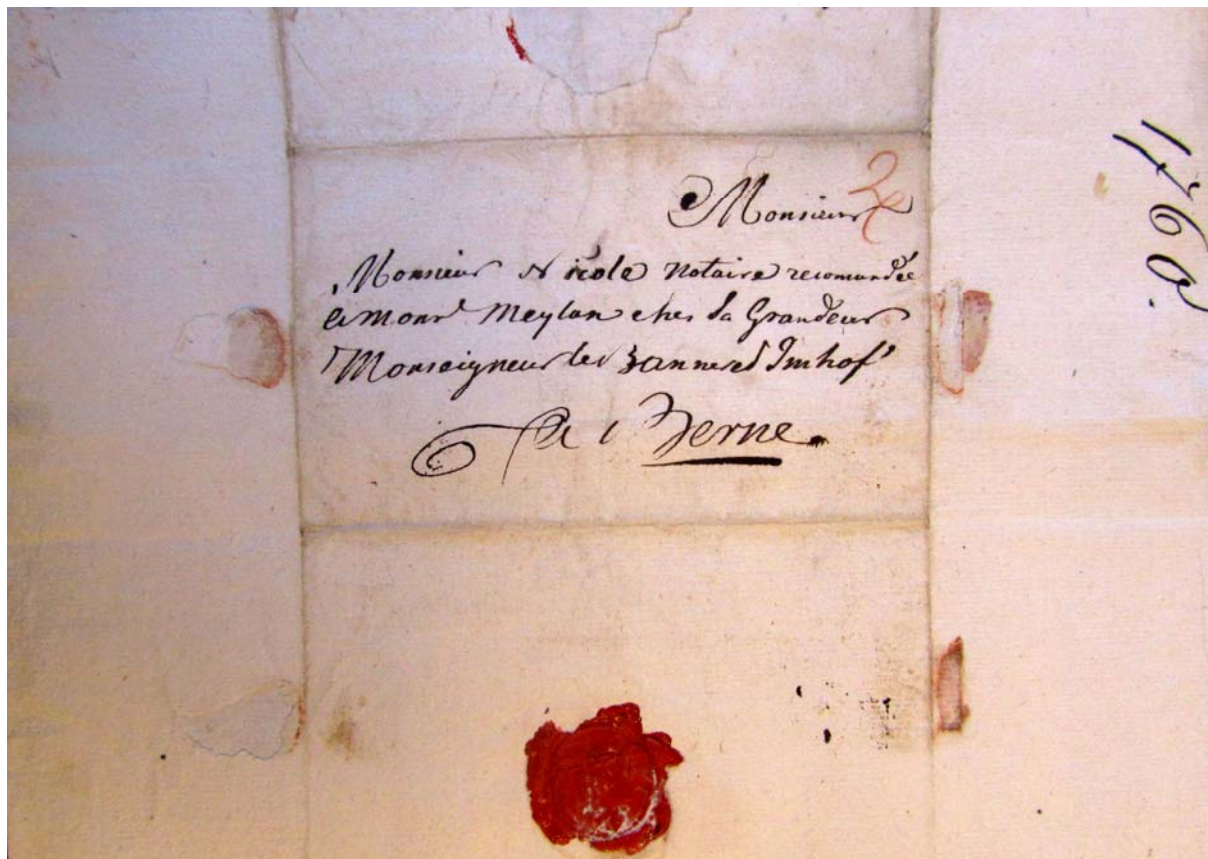 Monsieur
2
Monsieur Nicole Notaire recomandée
a monr Meylan ches sa Grandeur
Monseigneur le Banneret Imhof
A Berne.
1760.